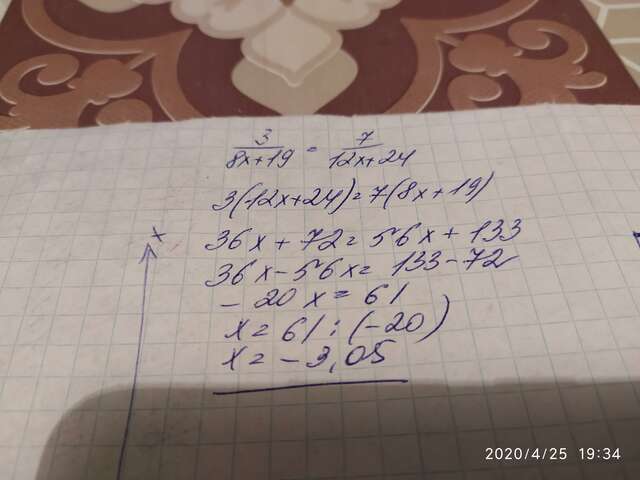 3/(8x+19) = 7/(12x+24)
3(12x+24)=7(8x+19)
36x+72=56x+133
36x-56x=133-72
-20x=61
x=61:(-20)
x=-3,05
x
2020/4/25 19:34